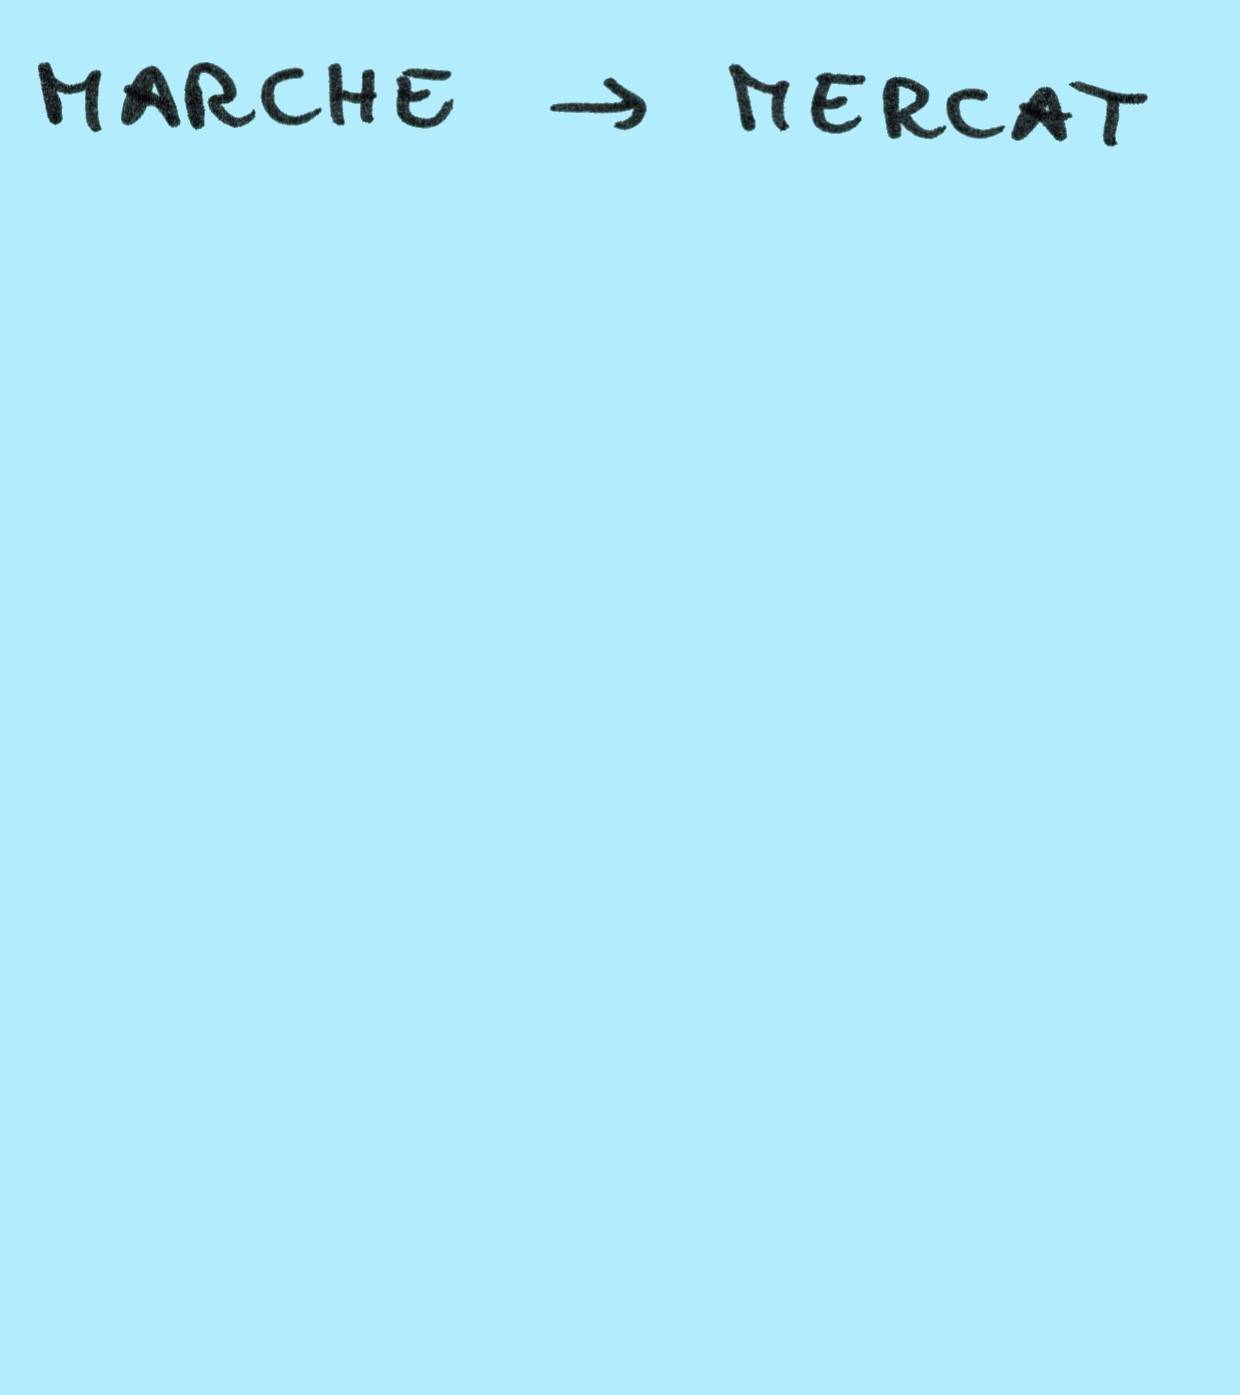 MARCHE → MERCAT